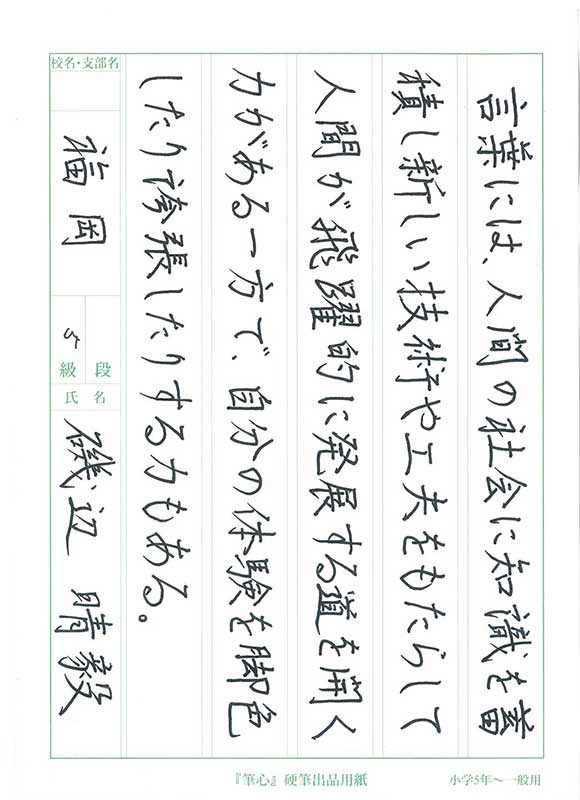 言葉には、人間の社会に知識を蓄
積し新しい技術や工夫をもたらして
人間が飛躍的に発展する道を開く
力がある一方で、自分の体験を脚色
したり誇張したりする力もある。
校名・支部名
福岡
段
級
5
氏名
磯辺 晴毅
『筆心』硬筆出品用紙
小学5年～一般用